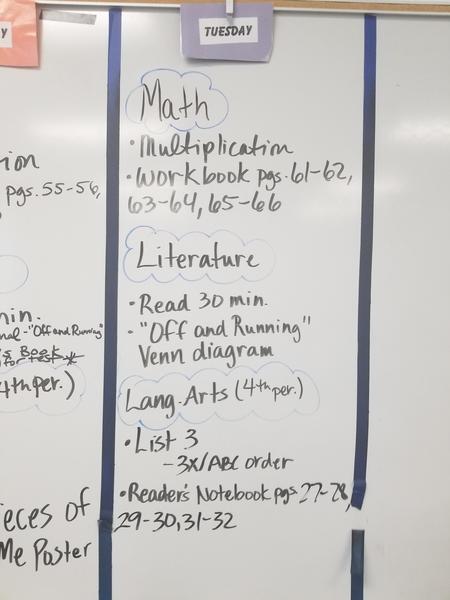 Y
TUESDAY
ion
pgs. 55-56,
min.
nal - "Off and Running"
Book
4th per.)
ieces of
Me Poster
Math
• Multiplication
• Workbook pgs. 61-62,
63-64, 65-66
Literature
• Read 30 min.
- "Off and Running"
Venn diagram
Lang. Arts (4th per.)
• List 3
- 3x/ABC order
• Reader's Notebook pgs. 27-28,
29-30, 31-32